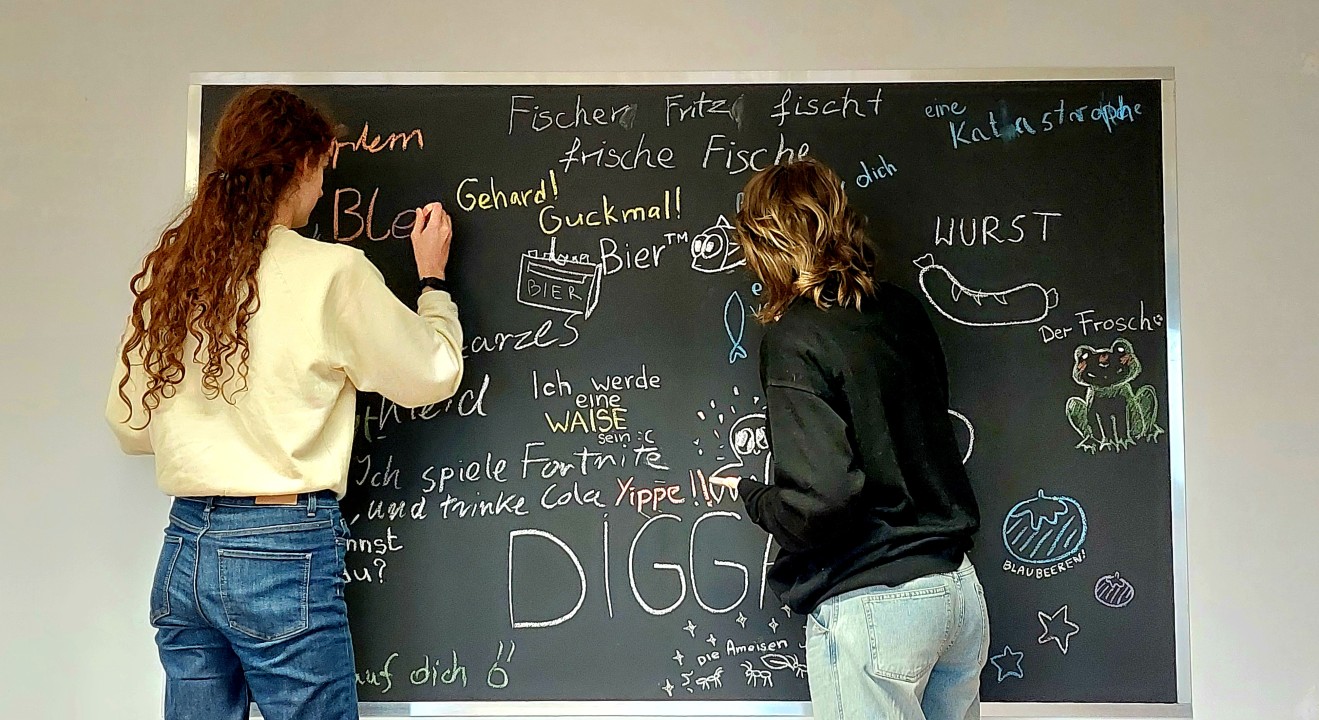 Fischer Fritz fischt
frische Fische
eine
Katastrophe
dich
Gehard!
Guckmal!
Bier™
BIER
WURST
Der Frosch
Ich werde
eine
WAISE
sein :C
Ich spiele Fortnite
, und trinke Cola Yippe!!
DIGGA
BLAUBEEREN!
Die Ameisen
auf dich